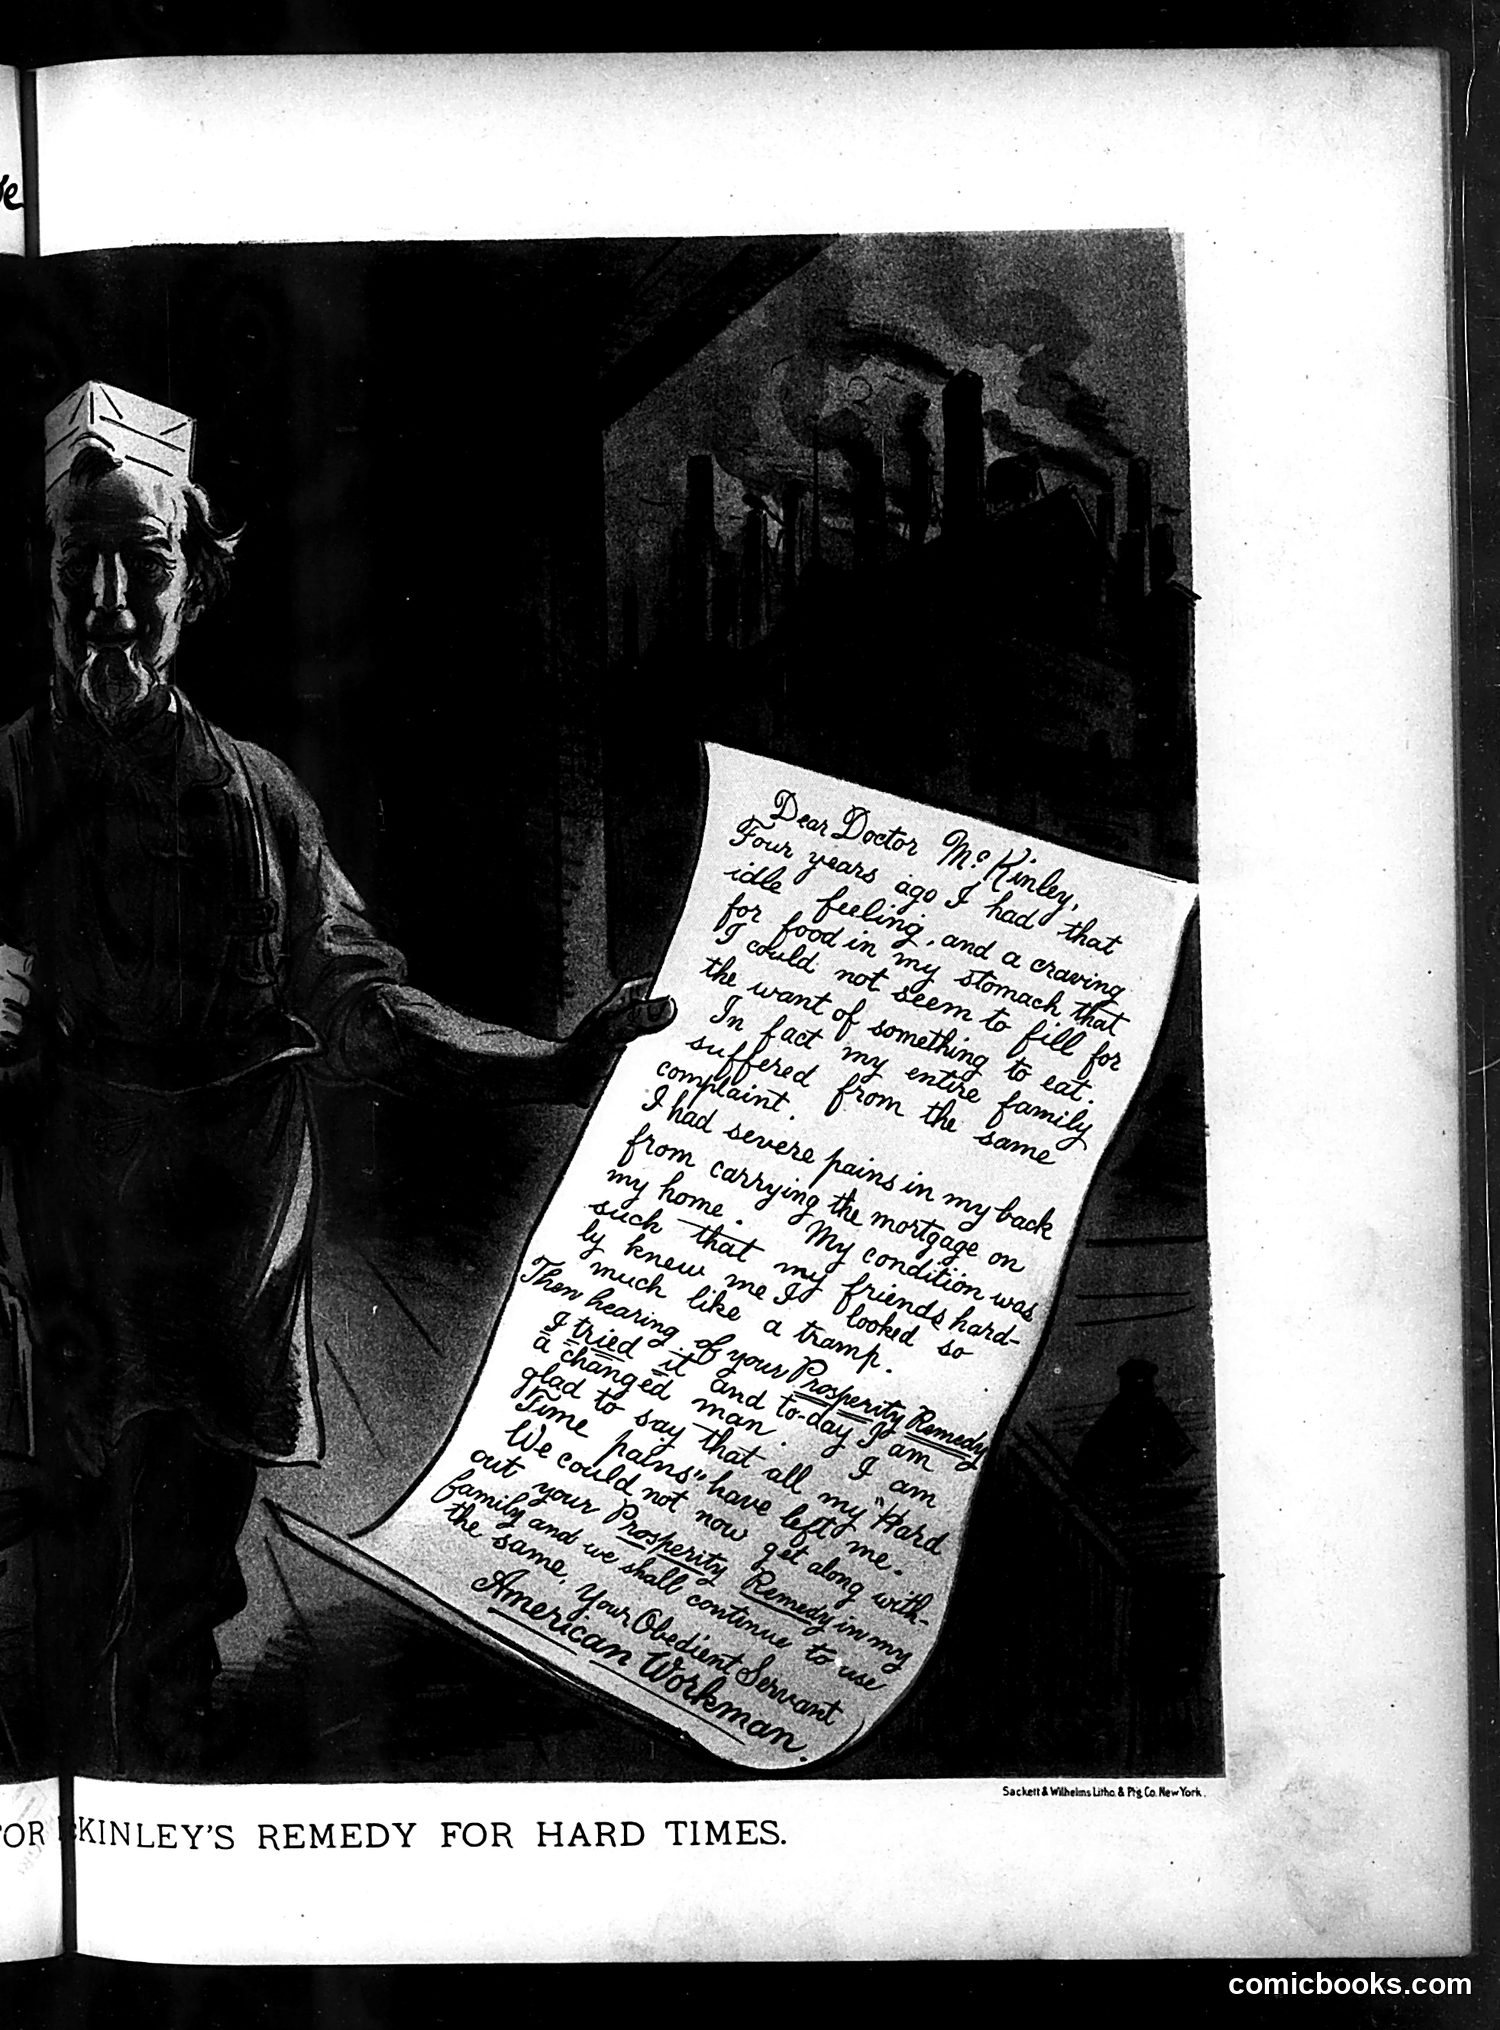 Dear Doctor McKinley,
Four years ago I had that
idle feeling, and a craving
for food in my stomach that
I could not seem to fill for
the want of something to eat.
In fact my entire family
suffered from the same
complaint.
I had severe pains in my back
from carrying the mortgage on
my home. My condition was
such that my friends hard-
ly knew me I looked so
much like a tramp.
Then hearing of your Prosperity Remedy
I tried it and to-day I am
a changed man. I am
glad to say that all my "Hard
Time pains" have left me.
We could not now get along with-
out your Prosperity Remedy in my
family and we shall continue to use
the same. Your Obedient Servant
American Workman.
Sackett & Wilhelms Litho. & Ptg. Co. New York.
OR McKINLEY'S REMEDY FOR HARD TIMES.
comicbooks.com